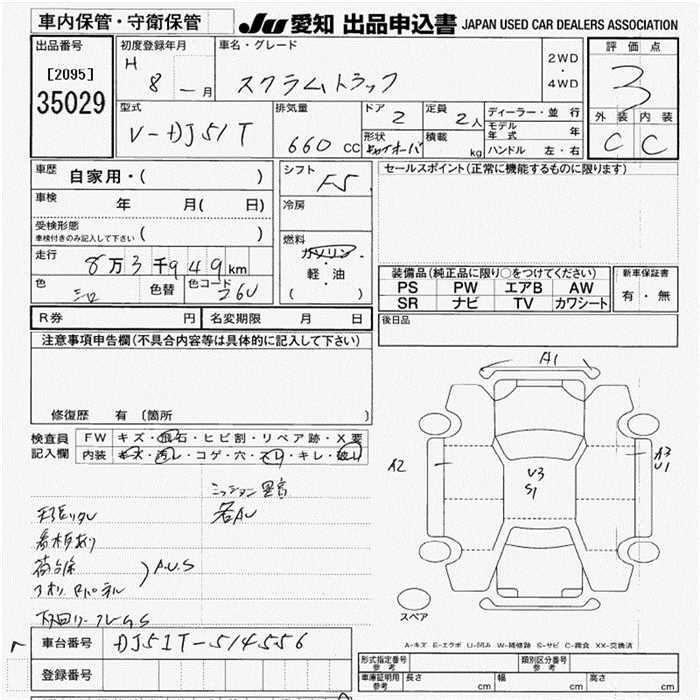 車内保管・守衛保管
JU 愛知 出品申込書 JAPAN USED CAR DEALERS ASSOCIATION
出品番号
[2095]
35029
初度登録年月
H 8 年 月
車名・グレード
スクラムトラック
2WD
・
4WD
評価点
3
外装 内装
C C
型式
V-DJ51T
排気量
660 CC
ドア
2
定員
2人
形状
積載
kg
ディーラー・並行
モデル年式 年
ハンドル 左・右
車歴
自家用・( )
車検
年 月( 日)
受検形態
車検付きのみ記入して下さい ( )
走行
8万3千949km
色
シロ
色替
色コード
26U
シフト
F5
冷房
燃料
ガソリン
・
軽・油
( )
セールスポイント(正常に機能するものに限ります)
装備品(純正品に限り○をつけてください)
PS PW エアB AW
SR ナビ TV カワシート
新車保証書
有・無
R券 円
名変期限 月 日
後日品
注意事項申告欄(不具合内容等は具体的に記入して下さい)
修復歴 有 〔箇所 〕
検査員
記入欄
FW キズ・飛石・ヒビ割・リペア跡・X要
内装 キズ・汚レ・コゲ・穴・スレ・キレ・破レ
ミッション異音
各AU
看板あり
荷台
A.U.S
A1
A2
A3
U1
U3
S1
スペア
A-キズ E-エクボ U-凹み W-補修跡 S-サビ C-腐食 XX-交換済
車台番号
DJ51T-514556
登録番号
形式指定番号
参考
類別区分番号
参考
車庫証明用
参考
長さ cm
幅 cm
高さ cm